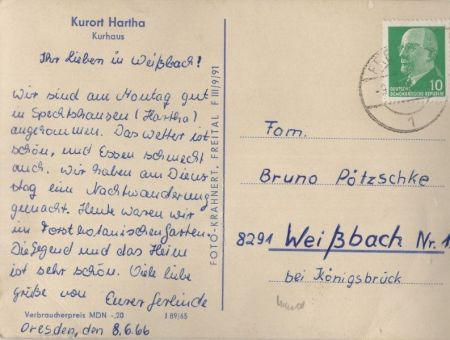 Kurort Hartha
Kurhaus
Ihr Lieben in Weißbach!
Wir sind am Montag gut
in Spechtshausen (Hartha)
angekommen. Das Wetter ist
schön, und Essen schmeckt
auch. Wir haben am Diens-
tag eine Nachtwanderung
gemacht. Heute waren wir
im Forstbotanischen Garten.
Die Gegend und das Heim
ist sehr schön. Viele liebe
Grüße von Eurer Gerlinde
Verbraucherpreis MDN -,20 J 89/65
Dresden, den 8.6.66
FOTO-KRAHNERT, FREITAL F III/9/91
10
DEUTSCHE
DEMOKRATISCHE REPUBLIK
1
Fam.
Bruno Pötzschke
8291 Weißbach Nr. 1
bei Königsbrück